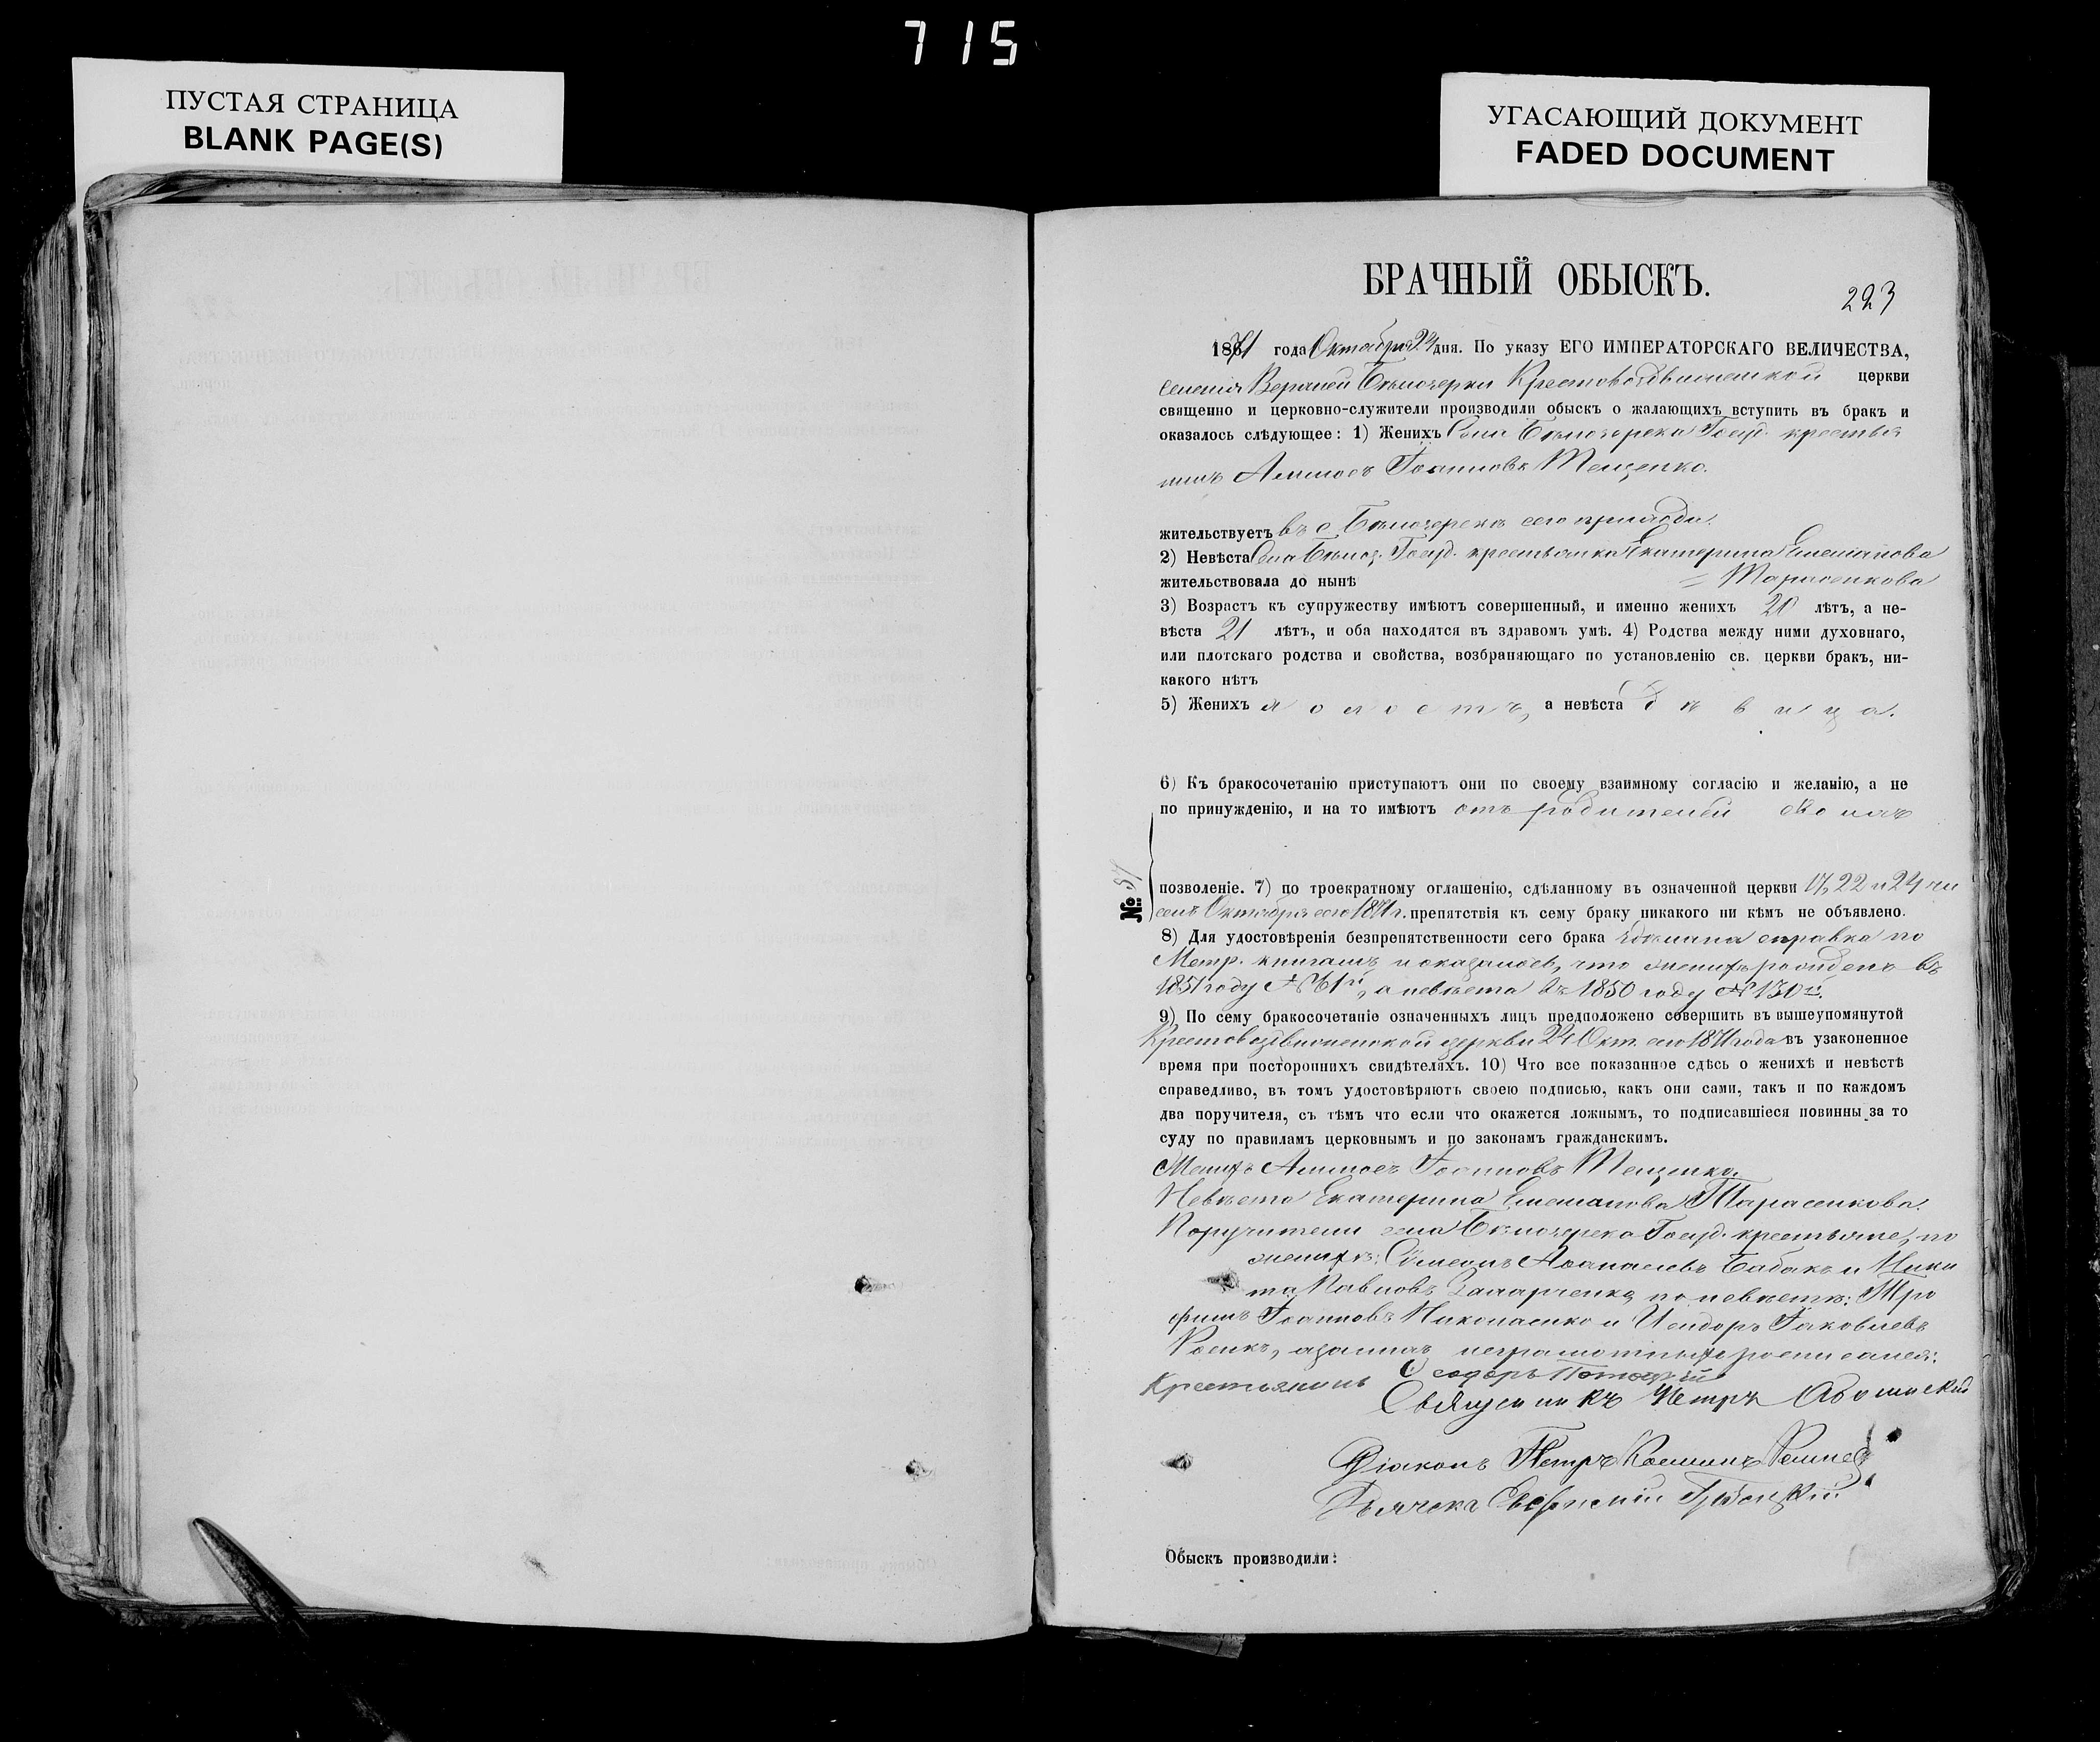 715
ПУСТАЯ СТРАНИЦА
BLANK PAGE(S)
УГАСАЮЩИЙ ДОКУМЕНТ
FADED DOCUMENT
БРАЧНЫЙ ОБЫСКЪ.
223
1871 года Октября 24 дня. По указу ЕГО ИМПЕРАТОРСКАГО ВЕЛИЧЕСТВА,
селенія Верхней Бѣлозерки Крестовоздвиженской церкви
священно и церковно-служители производили обыскъ о жалающихъ вступить въ бракъ и
оказалось слѣдующее: 1) Женихъ Села Бѣлозерска Госуд. крестья
нинъ Іоанновъ Тещенко.
жительствуетъ въ с. Бѣлозеркѣ сего прихода.
2) Невѣста Села Бѣлоз. Госуд. крестьянка Екатерина Емельянова
жительствовала до нынѣ = Тарасенкова
3) Возрастъ къ супружеству имѣютъ совершенный, и именно женихъ 20 лѣтъ, а не-
вѣста 21 лѣтъ, и оба находятся въ здравомъ умѣ. 4) Родства между ними духовнаго,
или плотскаго родства и свойства, возбраняющаго по установленію св. церкви бракъ, ни-
какого нѣтъ
5) Женихъ холостъ, а невѣста дѣвица.
6) Къ бракосочетанію приступаютъ они по своему взаимному согласію и желанію, а не
по принужденію, и на то имѣютъ отъ родителей своихъ
№ 51
позволеніе. 7) по троекратному оглашенію, сдѣланному въ означенной церкви 17, 22 и 24 чи
селъ Октября сего 1871 г. препятствія къ сему браку никакого ни кѣмъ не объявлено.
8) Для удостовѣренія безпрепятственности сего брака сдѣлана справка по
Метр. книгамъ и оказалось, что женихъ рожденъ въ
1851 году № 61й, а невѣста въ 1850 году № 130й.
9) По сему бракосочетаніе означенныхъ лицъ предположено совершить въ вышеупомянутой
Крестовоздвиженской церкви 24 Окт. сего 1871 года въ узаконенное
время при посторонихъ свидѣтеляхъ. 10) Что все показанное сдѣсь о женихѣ и невѣстѣ
справедливо, въ томъ удостовѣряютъ своею подписью, какъ они сами, такъ и по каждомъ
два поручителя, съ тѣмъ что если что окажется ложнымъ, то подписавшіеся повинны за то
суду по правиламъ церковнымъ и по законамъ гражданскимъ.
Женихъ Іоанновъ Тещенко.
Невѣста Екатерина Емельянова Тарасенкова.
Поручители села Бѣлозерска Госуд. крестьяне, по
женихѣ: Симеонъ Аѳанасіевъ Бабакъ и Ники
та Павловъ по невѣстѣ: Тро
фимъ Іоанновъ Николаенко и Исидоръ Іаковлевъ
а за нихъ неграмотныхъ росписался:
Крестьянинъ Ѳеодоръ
Священникъ Петръ
Діаконъ Петръ
Дьячекъ
Обыскъ производили: